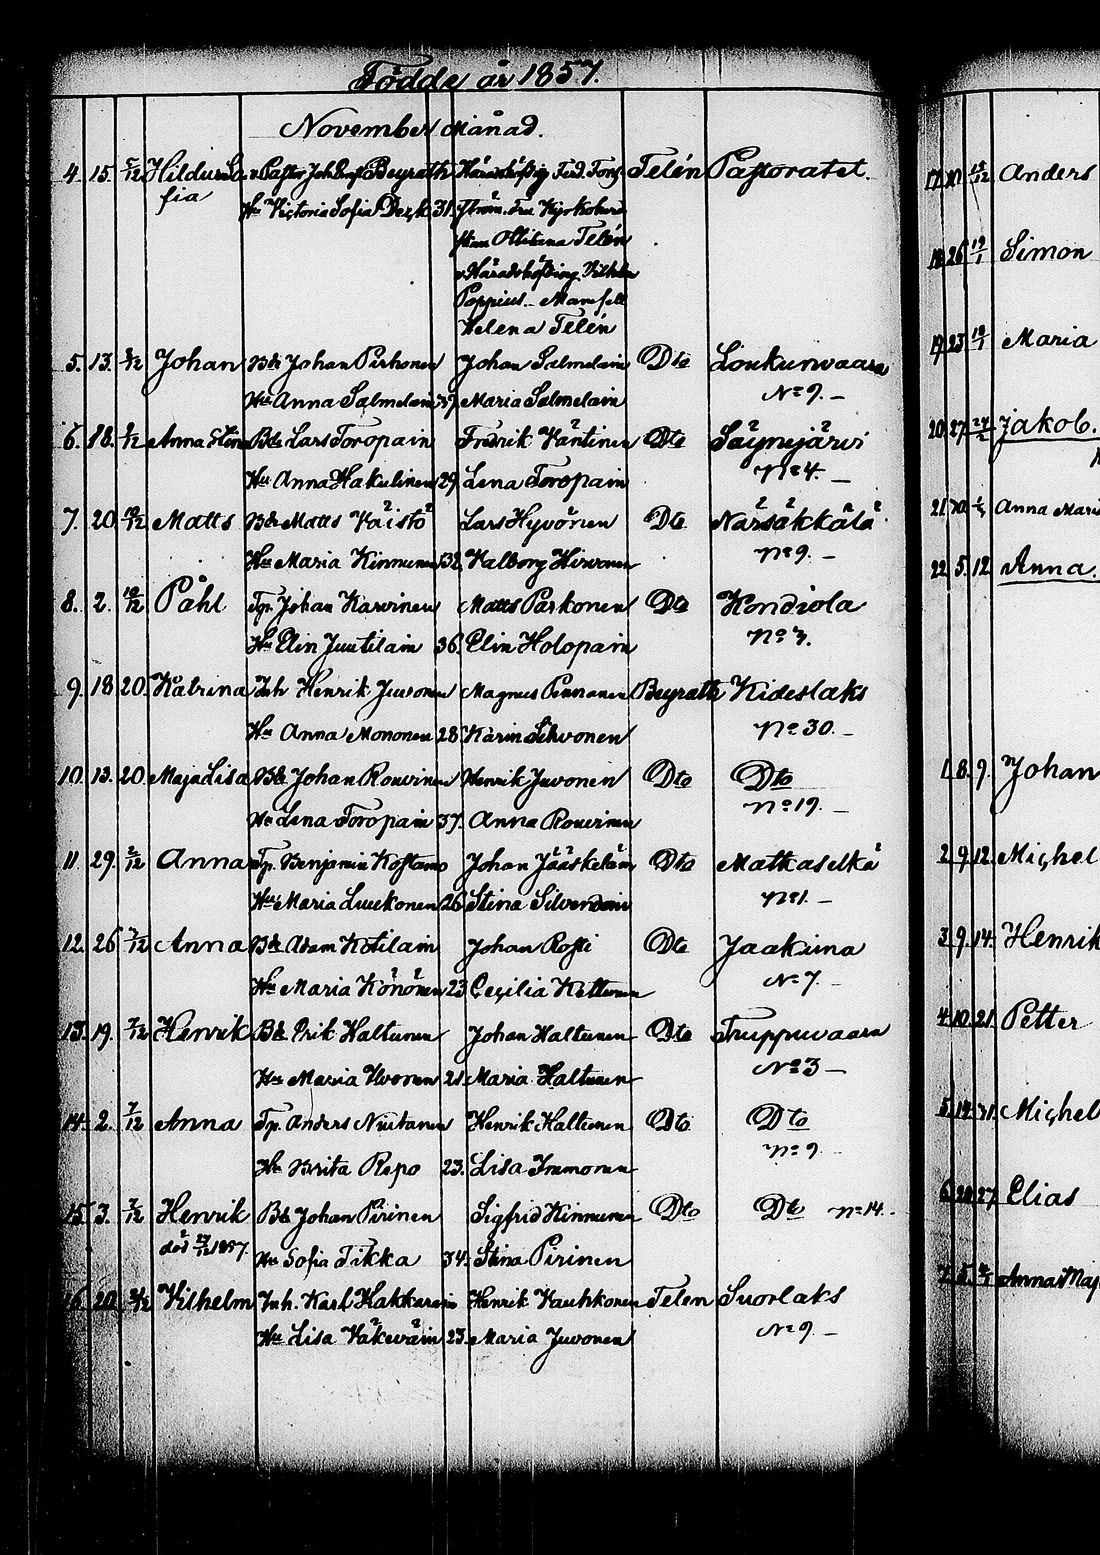 Födde år 1857.
November Månad.
4. 15. 5/12 Hilda So- v. Pastor Joh. Beyrath Häradshöfding Ferd. Fors- Telén Pastoratet.
fia Hu Victoria Sofia 31. ström. Fru Kyrkoherd-
skan Telén
v. Häradshöfding Vilhelm
Poppius - Mamsell
Helena Telén
5. 13. 8/12 Johan Bde Johan Pirhonen Johan Salmelain Dto Loukunvaara
Hu Anna Salmelain 37. Maria Salmelain No 9. -
6. 18. 8/12 Anna Stina Bde Lars Toropain Fredrik Väntinen Dto Säynejärvi
Hu Anna Hakulinen 29. Lena Toropain No 4. -
7. 20. 10/12 Matts Bde Matts Väistö Lars Hyvönen Dto Närsäkkälä
Hu Maria Kinnunen 32. Valborg Hirvonen No 9. -
8. 2. 10/12 Påhl Tp. Johan Karvinen Matts Parkonen Dto Kondiola
Hu Elin Juutilain 36. Elin Holopain No 3.
9. 18. 20. Katrina Inh Henrik Juvonen Magnus Pennanen Beyrath Kideslaks
Hu Anna Mononen 28. Karin Sihvonen No 30. -
10. 13. 20. Maja Lisa Bde Johan Rouvinen Henrik Juvonen Dto Dto
Hu Lena Toropain 37. Anna Rouvinen No 19. -
11. 29. 2/12 Anna Tp. Benjamin Kostamo Johan Jääskeläin Dto Matkaselkä
Hu Maria Luukonen 26. Stina Silvendoin No 1. -
12. 26 7/12 Anna Bde Adam Kotilain Johan Rossi Dto Jaakima
Hu Maria Könönen 23. Cecilia Kettunen No 7. -
13. 19. 7/12 Henrik Bde Erik Haltunen Johan Haltunen Dto Truppuvaara
Hu Maria Ikonen 21. Maria Haltunen No 3 -
14. 2. 7/12 Anna Tp. Anders Niutanen Henrik Haltunen Dto Dto
Hu Brita Repo 23. Lisa Immonen No 9
15. 3. 7/12 Henrik Bde Johan Pirinen Sigfrid Kinnunen Dto Dto No 14.
död 27/12 1857. Hu Sofia Tikka 34. Stina Pirinen
16. 20. Vilhelm Inh. Karl Hakkarain Henrik Kauhkonen Telen Suorlaks
Hu Lisa Väkeväin 23. Maria Juvonen No 9 -
Anders
Simon
19. 23 Maria
20. 27 Jakob.
21. Anna Maria
22. 5. 12 Anna.
1. 8. 9. Johan
2. 9. 12. Michel
3. 9. 14. Henrik
4. 10. 21. Petter
5. Michel
6. 27. Elias
7. Anna Maj